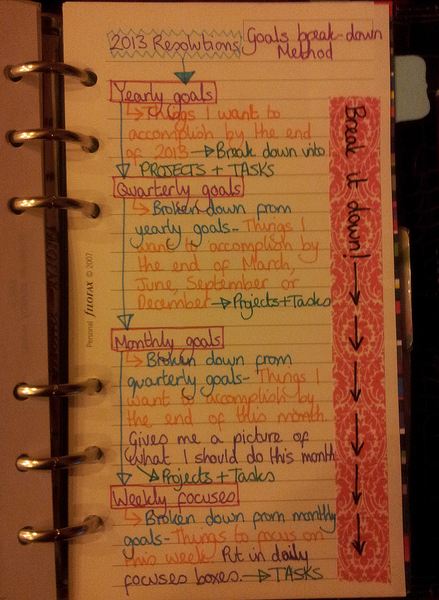 2013 Resolutions
Goals break-down
Method
Yearly goals
Things I want to
accomplish by the end
of 2013 → Break down into
PROJECTS + TASKS
Quarterly goals
Broken down from
yearly goals - Things I
want to accomplish by
the end of March,
June, September or
December → Projects + Tasks
Monthly goals
Broken down from
quarterly goals - Things I
want to accomplish by
the end of this month.
Gives me a picture of
what I should do this month
→ Projects + Tasks
Weekly focuses
Broken down from monthly
goals - Things to focus on
this week. Put in daily
focuses boxes. → TASKS
Break it down!
Personal filofax © 2007